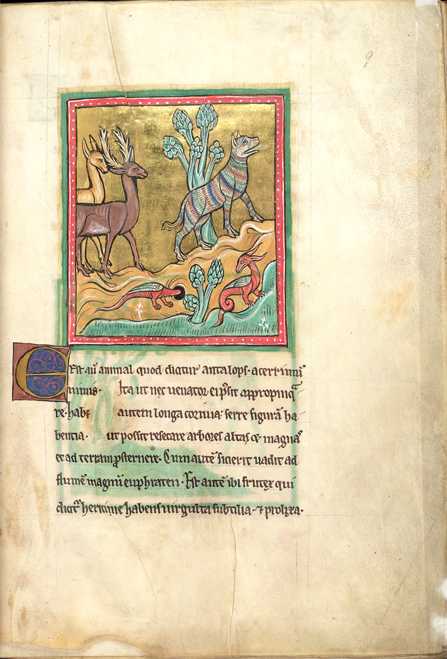 9
Est aliud animal quod dicitur antalops · acerrimum
nimis · Ita ut nec venator ei possit appropinqua
re · habet autem longa cornua · serre figuram ha
bentia · ut possit resecare arbores altas et magnas
et ad terram prosternere · Cum autem sitierit vadit ad
flumen magnum euphraten · Est autem ibi frutex qui
dicitur hericine habens virgulta subtilia · et prolixa ·